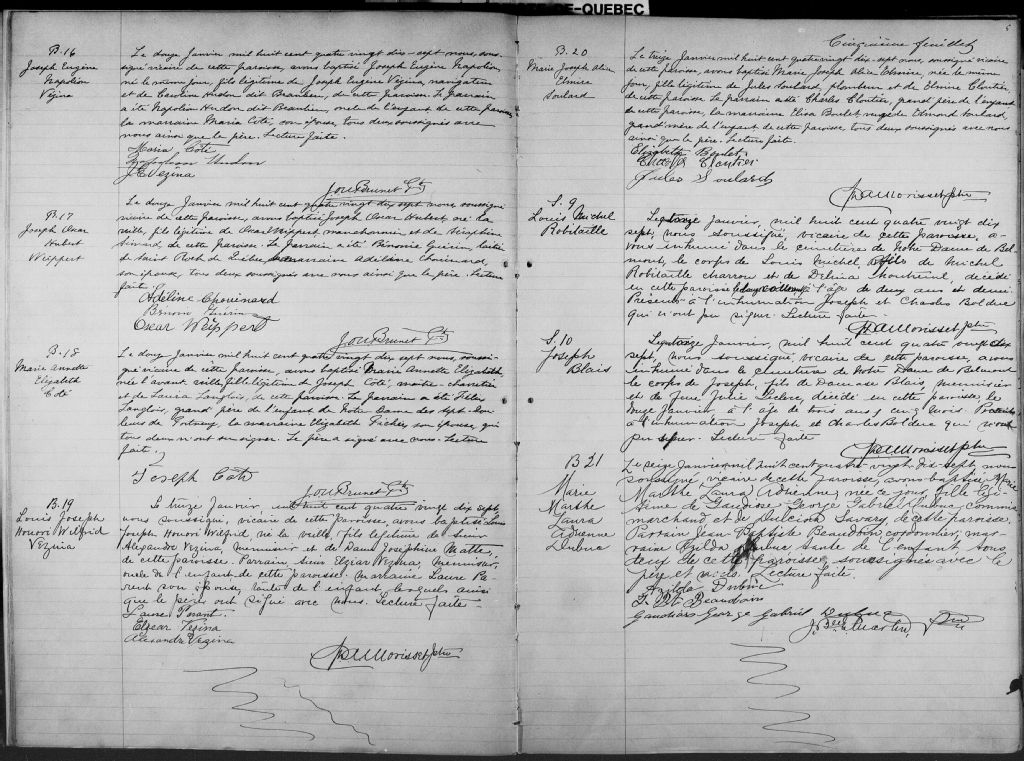 DE-QUEBEC
B.16
Joseph Eugène
Napoléon
Vézina
Le douze Janvier mil huit cent quatre vingt dix-sept nous, sous-
signé vicaire de cette paroisse, avons baptisé Joseph Eugène Napoléon,
né le même jour, fils légitime de Joseph Eugène Vézina, navigateur
et de Hudon dit Beaulieu, de cette paroisse. Le parrain
a été Napoléon Hudon dit Beaulieu, oncle de l'enfant de cette paroisse
la marraine Maria Coté, son épouse, tous deux soussignés avec
nous ainsi que le père. Lecture faite.
Maria Coté
Napoléon Hudon
J E Vézina
Brunet
B.17
Joseph Oscar
Hubert
Weippert
Le douze Janvier mil huit cent quatre vingt dix sept nous soussigné
vicaire de cette paroisse, avons baptisé Joseph Oscar Hubert né la
veille, fils légitime de Oscar Weippert, et de Séraphine
Simard, de cette paroisse. Le parrain a été Guérin,
de Saint Roch de Québec, la marraine Adéline Chouinard,
son épouse, tous deux soussignés avec nous ainsi que le père. Lecture
faite.
Adéline Chouinard
Guérin
Oscar Weippert
Brunet
B.18
Marie Annette
Elizabeth
Coté
Le douze Janvier mil huit cent quatre vingt dix sept nous, soussi-
gné vicaire de cette paroisse, avons baptisé Marie Annette Elizabeth
née l'avant veille, fille légitime de Joseph Coté, maitre-charretier
et de Laura Langlois, de cette paroisse. Le parrain a été
Langlois, grand père de l'enfant de Notre Dame des Sept-Dou-
leurs de Portneuf, la marraine Elizabeth son épouse, qui
tous deux n'ont su signer. Le père a signé avec nous. Lecture
faite.
Joseph Coté
Brunet
B.19
Louis Joseph
Honoré Wilfrid
Vézina
Le treize Janvier, mil huit cent quatre vingt dix sept,
nous soussigné, vicaire de cette paroisse, avons baptisé Louis
Joseph Honoré Wilfrid, né la veille, fils légitime de Sieur
Alexandre Vézina, menuisier et de Dame Joséphine Matte,
de cette paroisse. Parrain, Sieur Elzéar Vézina, menuisier,
oncle de l'enfant de cette paroisse. marraine Laure Pa-
rent son épouse, tante de l'enfant lesquels ainsi
que le père ont signé avec nous. Lecture faite
Laure Parent
Elzear Vézina
Alexandre Vézina
Morisset ptre
5
Cinquième feuillet
B.20
Marie Joseph Alice
Elmire
Soulard
Le treize Janvier mil huit cent quatre vingt dix-sept nous, soussigné vicaire
de cette paroisse, avons baptisé Marie Joseph Alice Elmire, née le même
jour, fille légitime de Jules Soulard, plombier et de Elmire Cloutier,
de cette paroisse. Le parrain a été Charles Cloutier, grand père de l'enfant
de cette paroisse, la marraine Elisa Boulet veuve de Edmond Soulard,
grand mère de l'enfant de cette paroisse, tous deux soussignés avec nous
ainsi que le père. Lecture faite.
Elizabeth Boulet
Cloutier
Jules Soulard
Morisset ptre
S. 9
Louis Michel
Robitaille
Le treize Janvier, mil huit cent quatre vingt dix
sept, nous soussigné, vicaire de cette paroisse, a-
vons inhumé dans le cimetière de Notre Dame de Bel-
mont, le corps de Louis Michel, fils de Michel
Robitaille charron et de Delvina Montreuil, décédé
en cette paroisse le onze courant à l'âge de deux ans et demi
Présents à l'inhumation Joseph et Charles Bolduc
qui n'ont pu signer. Lecture faite.
Morisset ptre
S. 10
Joseph
Blais
Le treize Janvier, mil huit cent quatre vingt dix
sept, nous soussigné, vicaire de cette paroisse, avons
inhumé dans le cimetière de Notre Dame de Belmont
le corps de Joseph, fils de Damase Blais, menuisier
et de Julie Leclerc, décédé en cette paroisse, le
onze Janvier, à l'âge de trois ans, cinq mois. Présents
à l'inhumation Joseph et Charles Bolduc qui n'ont
pu signer. Lecture faite
Morisset ptre
B 21
Marie
Marthe
Laura
Adrienne
Dubuc
Le seize Janvier mil huit cent quatre vingt dix-sept, nous
soussigné, vicaire de cette paroisse, avons baptisé Marie
Marthe Laura Adrienne, née ce jour, fille légi-
time de Gaudiose George Gabriel Dubuc, commis
marchand et de Dulcida Savary, de cette paroisse.
Parrain Jean Baptiste Beaudoin, cordonnier, mar-
raine Azilda Dubuc tante de l'enfant tous
deux de cette paroisse, soussignés avec le
père et nous. Lecture faite.
Azilda Dubuc
J. Bte Beaudoin
Gaudiose George Gabriel Dubuc